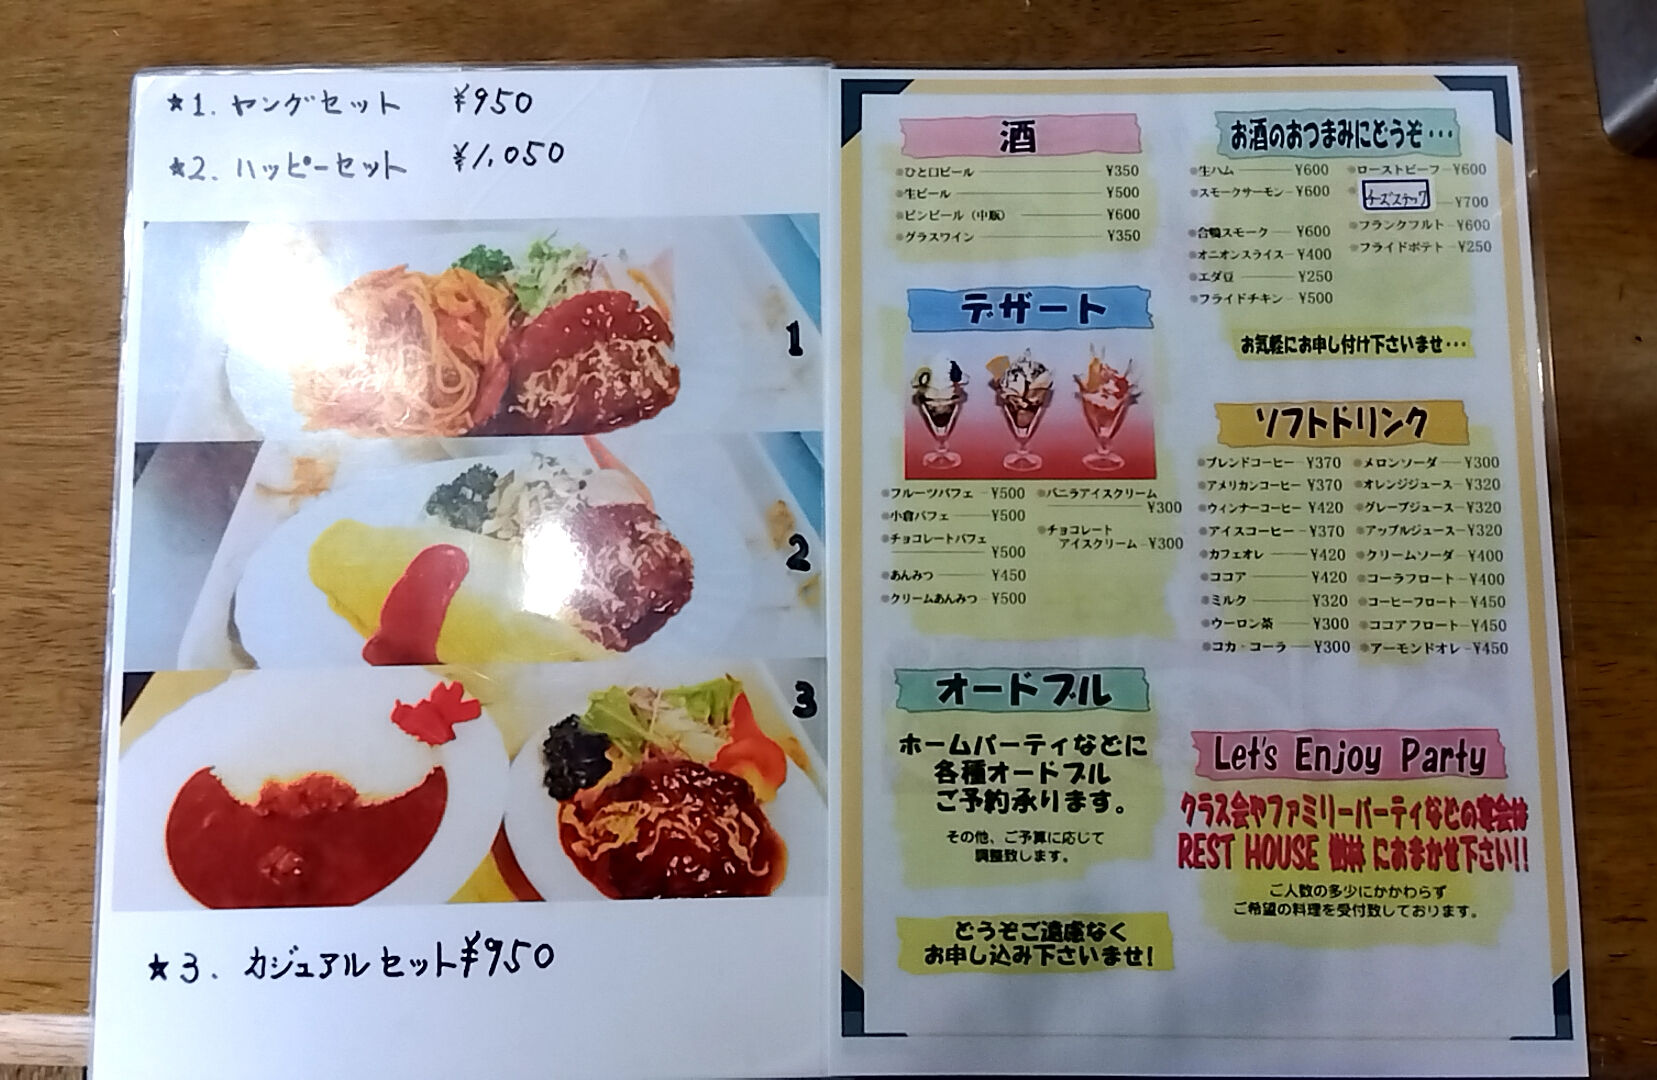 ★1. ヤングセット ¥950
★2. ハッピーセット ¥1,050
1
2
3
★3. カジュアルセット ¥950
酒
ひと口ビール ¥350
生ビール ¥500
ビンビール（中瓶） ¥600
グラスワイン ¥350
デザート
フルーツパフェ ¥500
小倉パフェ ¥500
チョコレートパフェ
¥500
あんみつ ¥450
クリームあんみつ ¥500
バニラアイスクリーム
¥300
チョコレート
アイスクリーム ¥300
オードブル
ホームパーティなどに
各種オードブル
ご予約承ります。
その他、ご予算に応じて
調整致します。
どうぞご遠慮なく
お申し込み下さいませ！
お酒のおつまみにどうぞ・・・
生ハム ¥600
スモークサーモン ¥600
合鴨スモーク ¥600
オニオンスライス ¥400
エダ豆 ¥250
フライドチキン ¥500
ローストビーフ ¥600
チーズステック ¥700
フランクフルト ¥600
フライドポテト ¥250
お気軽にお申し付け下さいませ・・・
ソフトドリンク
ブレンドコーヒー ¥370
アメリカンコーヒー ¥370
ウィンナーコーヒー ¥420
アイスコーヒー ¥370
カフェオレ ¥420
ココア ¥420
ミルク ¥320
ウーロン茶 ¥300
コカ・コーラ ¥300
メロンソーダ ¥300
オレンジジュース ¥320
グレープジュース ¥320
アップルジュース ¥320
クリームソーダ ¥400
コーラフロート ¥400
コーヒーフロート ¥450
ココアフロート ¥450
アーモンドオレ ¥450
Let's Enjoy Party
クラス会やファミリーパーティなどの宴会は
REST HOUSE におまかせ下さい!!
ご人数の多少にかかわらず
ご希望の料理を受付致しております。